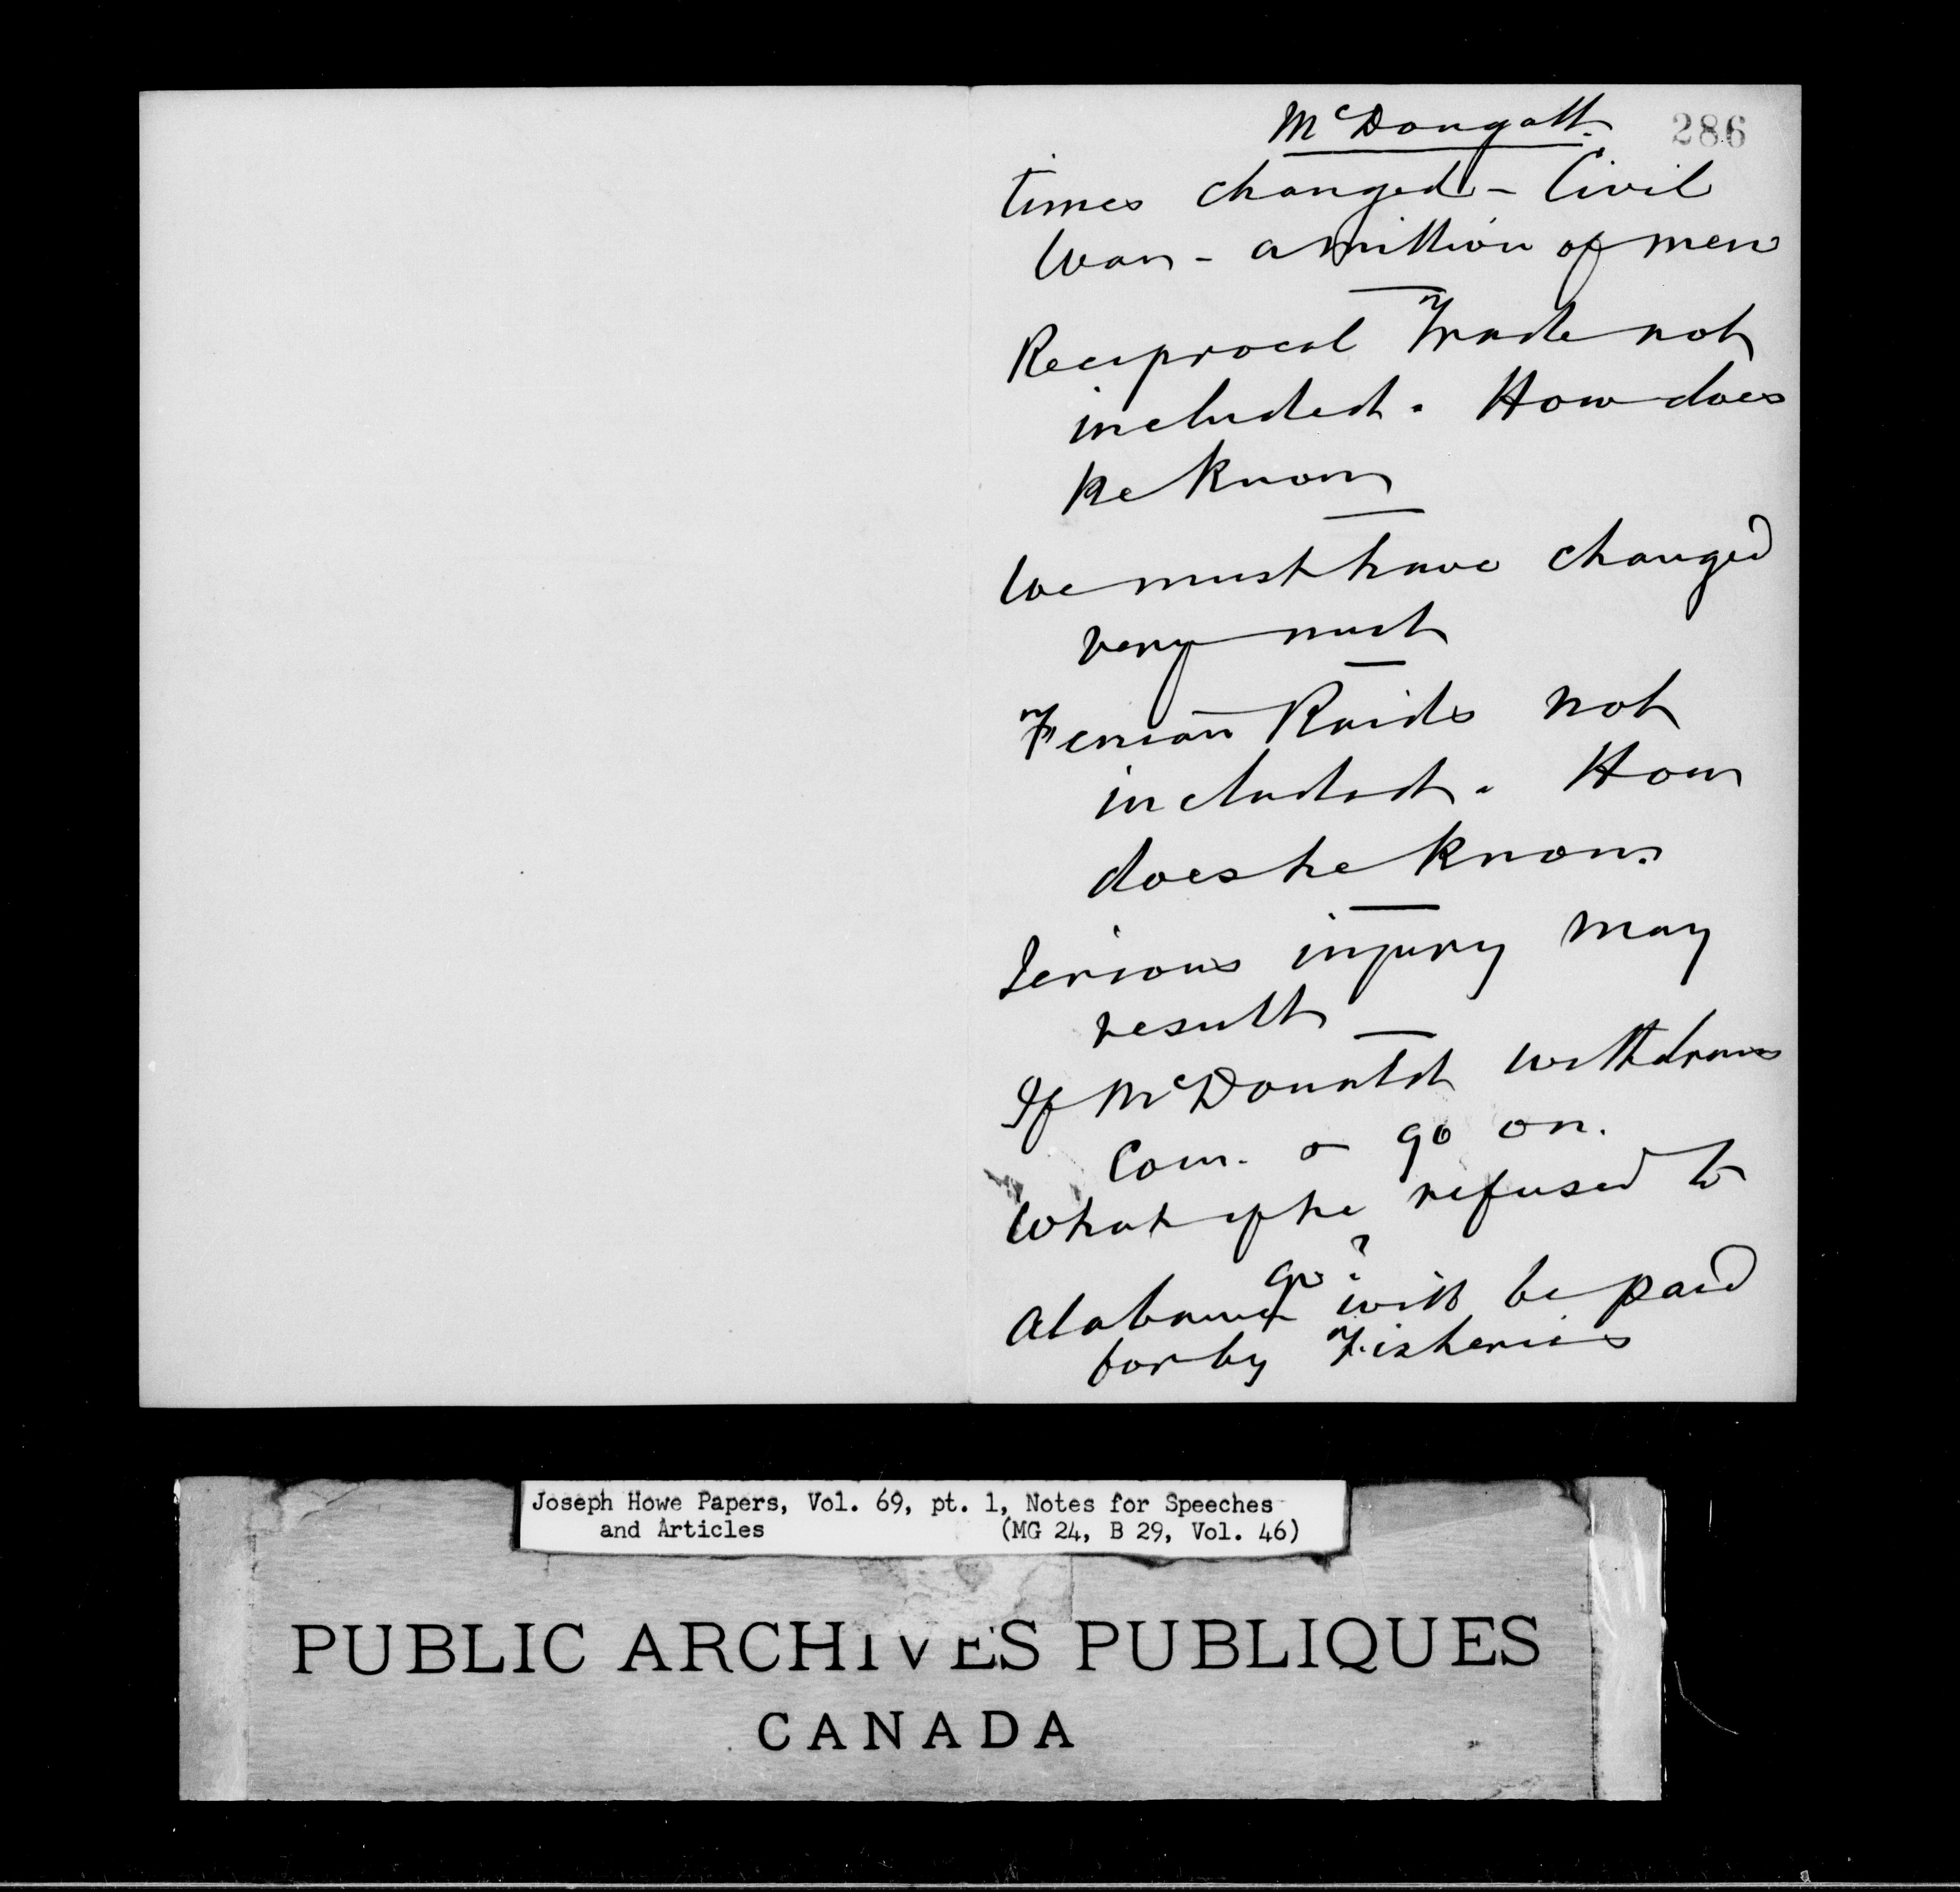 McDougall.
286
times changed - Civil
War - a million of men
Reciprocal Trade not
included. How does
he know
We must have changed
very much
Fenian Raids not
included. How
does he know.
Serious injury may
result
If McDonald withdraws
Com. o go on.
What if he refused to
go?
Alabama will be paid
for by Fisheries
Joseph Howe Papers, Vol. 69, pt. 1, Notes for Speeches
and Articles (MG 24, B 29, Vol. 46)
PUBLIC ARCHIVES PUBLIQUES
CANADA